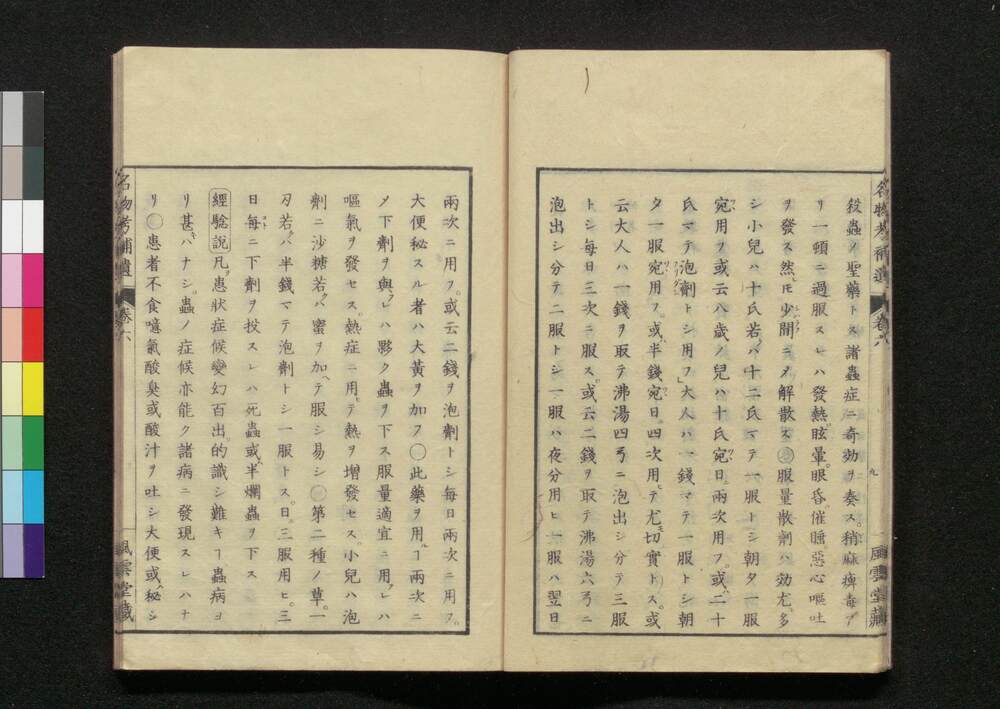 殺蟲ノ聖藥トス諸蟲症ニ奇効ヲ奏ス。稍麻痺毒ア
リ一頓ニ過服スセハ發熱。眩暈。眼昏。催睡惡心嘔吐
ヲ發ス然𪜈少間ニメ解散ス○服量散劑ハ効尤。多
シ小兒ハ十氏若ハ十二氏マテ一服トシ朝夕一服
宛用ヲ或云八歳ノ兒ハ十氏宛日。兩次用フ。或ハ二十
氏マテ泡劑トシ用フ」大人ハ一錢マテ一服トシ朝
夕一服宛用フ。或ハ半錢宛日。四次用ヒテ尤切實トス。或
云大人ハ一錢ヲ取テ沸湯四弓ニ泡出シ分テ三服
トシ每日三次ニ服ス。或云二錢ヲ取テ沸湯六弓ニ
泡出シ分テ二服トシ一服ハ夜分用ヒ一服ハ翌日
名物考補遺
卷六
九
風雲堂藏
兩次ニ用フ。或云二錢ヲ泡劑トシ每日兩次ニ用フ。
大便秘スル者ハ大黃ヲ加フ○此藥ヲ用ヿ兩次ニ
メ下劑ヲ與フレハ夥ク蟲ヲ下ス服量適宜ニ用フレハ
嘔氣ヲ發セス。熱症ニ用ヒテ熱ヲ增發セス。小兒ハ泡
劑ニ沙糖若ハ蜜ヲ加ヘテ服シ易シ○第二種ノ草。一
刄若ハ半錢マテ泡劑トシ一服トス。日。三服用ヒ。三
日每ニ下劑ヲ投スレハ死蟲或ハ半爛蟲ヲ下ス
經驗說凡患狀症候變幻百出。的識シ難キヿ蟲病ヨ
リ甚キハナシ。蟲ノ症候亦能ク諸病ニ發現スレハナ
リ○患者不食噫氣酸臭或酸汁ヲ吐シ大便或ハ秘シ
名物考補遺
卷六
風雲堂藏